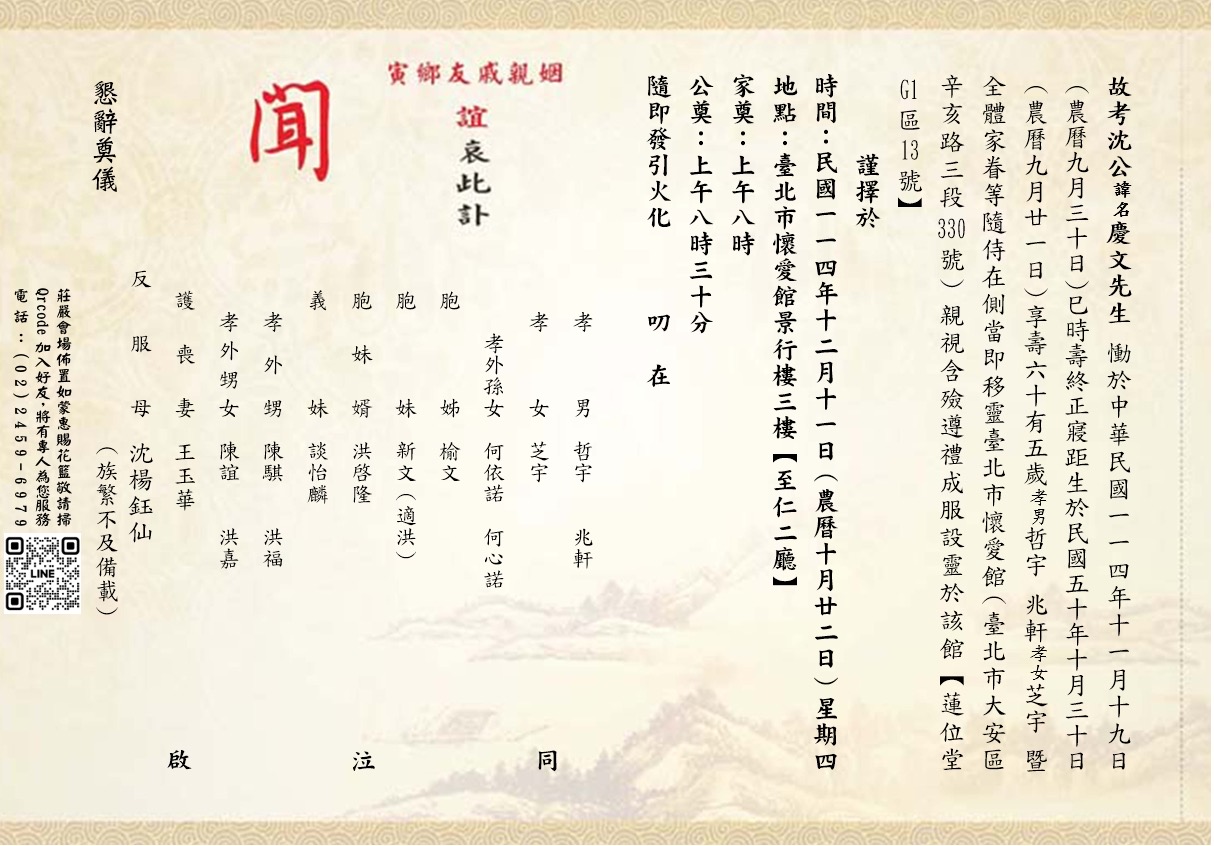 故考沈公諱名慶文先生 慟於中華民國一一四年十一月十九日
(農曆九月三十日)巳時壽終正寢距生於民國五十年十月三十日
(農曆九月廿一日)享壽六十有五歲孝男哲宇 兆軒孝女芝宇 暨
全體家眷等隨侍在側當即移靈臺北市懷愛館(臺北市大安區
辛亥路三段330號)親視含殮遵禮成服設靈於該館【蓮位堂
G1區13號】
謹擇於
時間:民國一一四年十二月十一日(農曆十月廿二日)星期四
地點:臺北市懷愛館景行樓三樓【至仁二廳】
家奠:上午八時
公奠:上午八時三十分
隨即發引火化 叨在
寅鄉友戚親姻
誼哀此訃
聞
孝男 哲宇 兆軒
孝女 芝宇
孝外孫女 何依諾 何心諾
胞姊 榆文
胞妹 新文(適洪)
胞妹婿 洪啓隆
義妹 談怡麟
孝外甥 陳騏 洪福
孝外甥女 陳誼 洪嘉
護喪妻 王玉華
反服母 沈楊鈺仙
(族繁不及備載)
同泣啟
懇辭奠儀
莊嚴會場佈置如蒙惠賜花籃敬請掃
Qrcode加入好友,將有專人為您服務
電話:(02)2459-6979
LINE